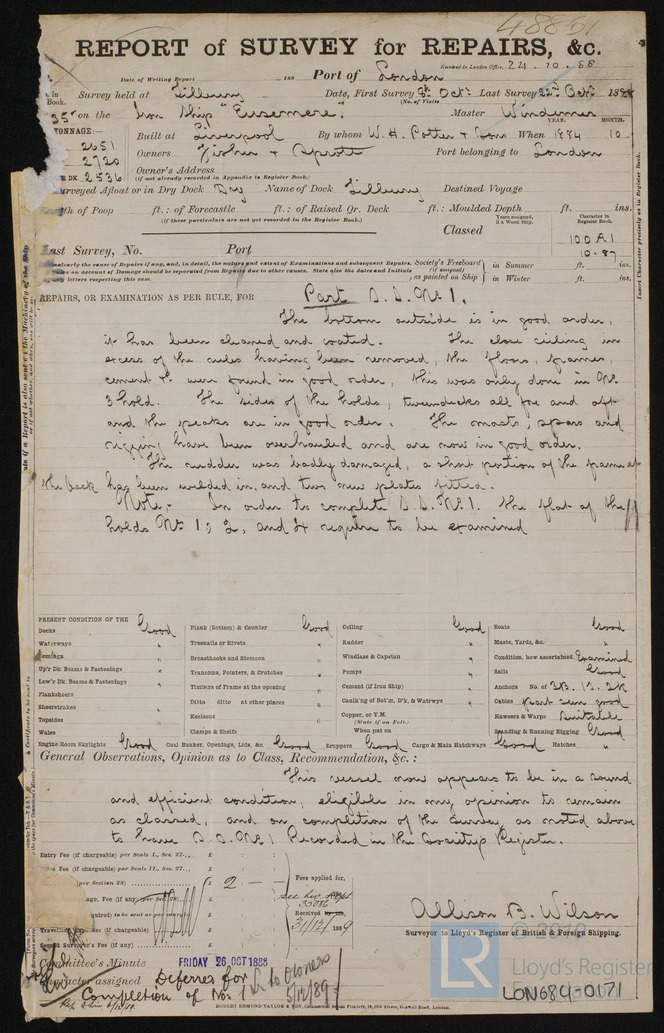 48861
REPORT of SURVEY for REPAIRS, &c.
Date of Writing Report 188 Port of London Received in London Office, 24.10.88
in Book. Survey held at Tilbury Date, First Survey 8th Octr Last Survey 22nd Octr 1888
(No. of Visits
35 on the Iron Ship "Eusemere". Master Windemer
YEAR. MONTH.
TONNAGE:— Built at Liverpool By whom W. H. Potter & Son When 1884 10
2651
2720 Owners Fisher & Sprott Port belonging to London
DK. 2536 Owner's Address
(if not already recorded in Appendix to Register Book.)
Surveyed Afloat or in Dry Dock Dry Name of Dock Tilbury Destined Voyage
of Poop ft.: of Forecastle ft.: of Raised Qr. Deck ft.: Moulded Depth ft. ins.
(if these particulars are not yet recorded in the Register Book.)
Years assigned, if a Wood Ship. Character in Register Book.
Classed 100 A1
10.87
Last Survey, No. Port
the cause of Repairs if any, and, in detail, the nature and extent of Examinations and subsequent Repairs.
on account of Damage should be separated from Repairs due to other causes. State also the dates and Initials
letters respecting this case.
Society's Freeboard (if assigned) as painted on Ship in Summer ft. ins.
in Winter ft. ins.
Insert Character precisely as in Register Book.
REPAIRS, OR EXAMINATION AS PER RULE, FOR Part S. S. No 1.
The bottom outside is in good order,
it has been cleaned and coated. The close ceiling in
excess of the rules having been removed, the floors, frames,
cement &c were found in good order, this was only done in No
3 hold. The sides of the holds, tweendecks all fore and aft
and the peaks are in good order. The masts, spars and
rigging have been overhauled and are now in good order.
The rudder was badly damaged, a short portion of the frame at
the back has been welded in, and two new plates fitted.
Note. In order to complete S. S. No 1. the flat of the
holds Nos 1, 2, and 4 require to be examined
PRESENT CONDITION OF THE
Decks Good
Waterways "
Comings "
Up'r Dk Beams & Fastenings "
Low'r Dk. Beams & Fastenings "
Planksheers
Sheerstrakes "
Topsides "
Wales
Engine Room Skylights Good
Plank (Bottom) & Counter Good
Treenails or Rivets "
Breasthooks and Stemson "
Transoms, Pointers, & Crutches "
Timbers of Frame at the opening "
Ditto ditto at other places "
Keelsons "
Clamps & Shelfs
Coal Bunker, Openings, Lids, &c. Good
Ceiling Good
Rudder "
Windlass & Capstan "
Pumps "
Cement (if Iron Ship) "
Caulk'ng of Bot'm, D'k, & Watrwys "
Copper, or Y.M.
(State if on Felt.)
When put on
Scuppers Good
Cargo & Main Hatchways Good
Boats Good
Masts, Yards, &c. "
Condition, how ascertained Examined
Sails Good
Anchors No. of 3B. 1S. 2K
Cables part seen good
Hawsers & Warps Suitable
Standing & Running Rigging Good
Hatches "
General Observations, Opinion as to Class, Recommendation, &c.:
This vessel now appears to be in a sound
and efficient condition, eligible in my opinion to remain
as classed, and on completion of the survey as noted above
to have S. S. No 1 Recorded in the Society's Register.
Entry Fee (if chargeable) per Scale I., Sec. 27... £ : :
Fee (if chargeable) per Scale II., Sec. 27... £ : :
(per Section 28) £ 2 — —
Fees applied for,
see Liv. Rept
33086
Received by
31/12/1889
Travelling (if chargeable) £
Second Surveyor's Fee (if any) £
Allison B. Wilson
Surveyor to Lloyd's Register of British & Foreign Shipping.
Committee's Minute FRIDAY 26 OCT 1888
Character assigned Deferred for
Completion of No. 1
Lr. to Owners
5/12/89
ROBERT EDMUND TAYLOR & SON,
© 2019
LR Lloyd's Register
LON684-0171